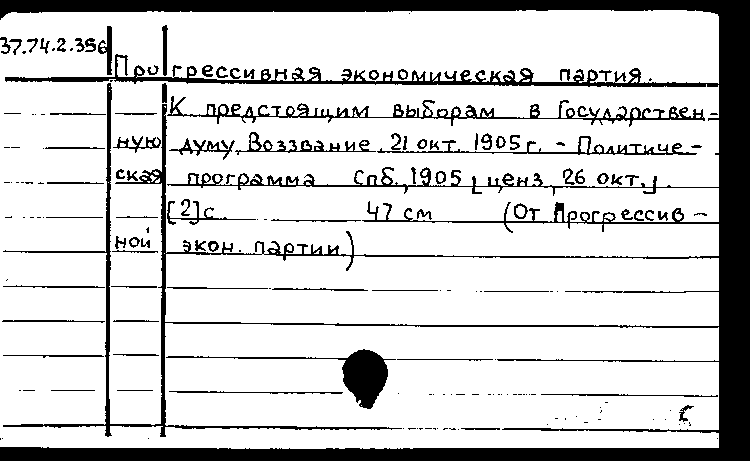 37.74.2.356
Прогрессивная экономическая партия.
К предстоящим выборам в Государствен-
ную думу. Воззвание. 21 окт. 1905 г. - Политиче-
ская программа Спб., 1905 [ценз. 26 окт.].
[2] с. 47 см (От Прогрессив-
ной экон. партии.)